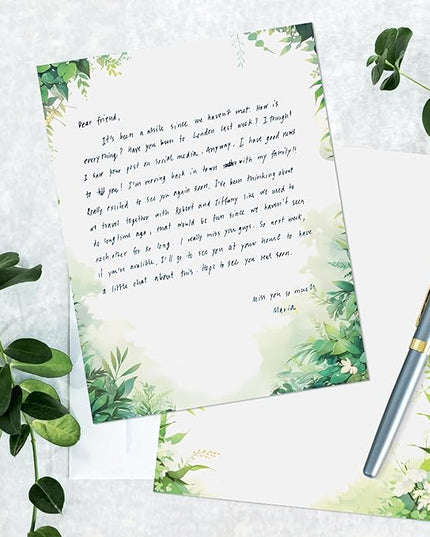 Dear friend,
It's been a while since we haven't met. How is
everything? Have you been to London last week? I thought
I saw your post on social media. Anyway, I have good news
to you! I'm moving back in town with my family!!
Really excited to see you again soon. I've been thinking about
a travel together with Robert and Tiffany like we used to
do longtime ago, that would be fun since we haven't seen
each other for so long. I really miss you guys. So next week,
if you're available, I'll go to see you at your house to have
a little chat about this. Hope to see you real soon.
Miss you so much,
Maria